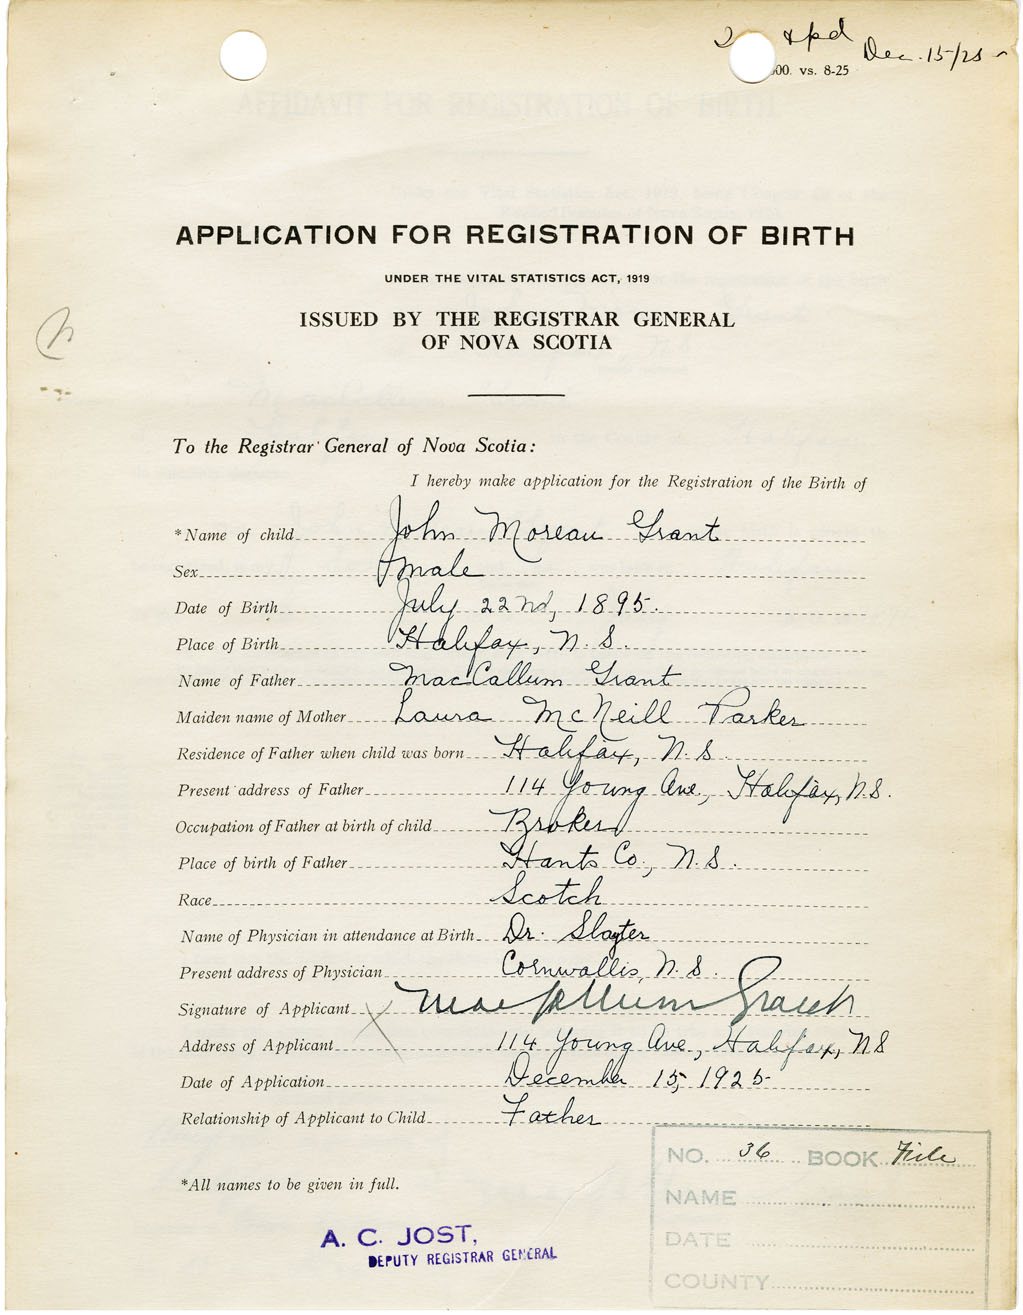 2 xpd Dec. 15/25
00. vs. 8-25
APPLICATION FOR REGISTRATION OF BIRTH
UNDER THE VITAL STATISTICS ACT, 1919
ISSUED BY THE REGISTRAR GENERAL
OF NOVA SCOTIA
To the Registrar General of Nova Scotia:
I hereby make application for the Registration of the Birth of
*Name of child John Moreau Grant
Sex Male
Date of Birth July 22nd, 1895.
Place of Birth Halifax, N. S.
Name of Father MacCallum Grant
Maiden name of Mother Laura McNeill Parker
Residence of Father when child was born Halifax, N. S.
Present address of Father 114 Young Ave., Halifax, N.S.
Occupation of Father at birth of child Broker
Place of birth of Father Hants Co., N. S.
Race Scotch
Name of Physician in attendance at Birth Dr. Slayter
Present address of Physician Cornwallis, N. S.
Signature of Applicant X MacCallum Grant
Address of Applicant 114 Young Ave., Halifax, NS
Date of Application December 15, 1925
Relationship of Applicant to Child Father
NO. 36 BOOK File
NAME
DATE
COUNTY
*All names to be given in full.
A. C. JOST,
DEPUTY REGISTRAR GENERAL